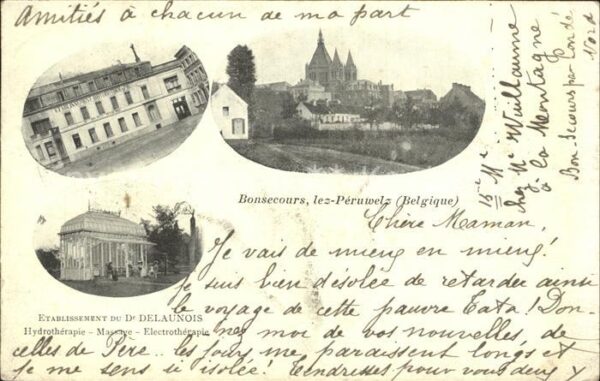 Amitiés à chacun de ma part
Bonsecours, lez-Péruwelz (Belgique)
ETABLISSEMENT DU Dr DELAUNOIS
Hydrothérapie – Massage – Electrothérapie
Chère Maman,
Je vais de mieux en mieux!
je suis bien désolée de retarder ainsi
le voyage de cette pauvre Tata! Don-
nez moi de vos nouvelles, de
celles de Père.. les jours me paraissent longs et
je me sens si isolée! Tendresses pour vous deux
chez Me Vuillaume
à la Montagne
Bon-Secours par Condé
Nord